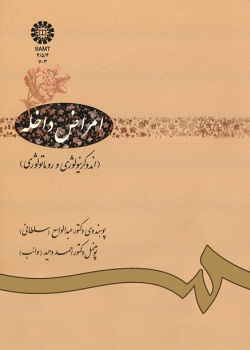 سمت
SAMT
۲۱۵/۴
۷۰۳
امراض داخله
(اندوکرینولوژی و روماتولوژی)
پوهندوی دکتور عبدالواسع (سلطانی)
پوهنمل دکتور احمد وحید (واثب)